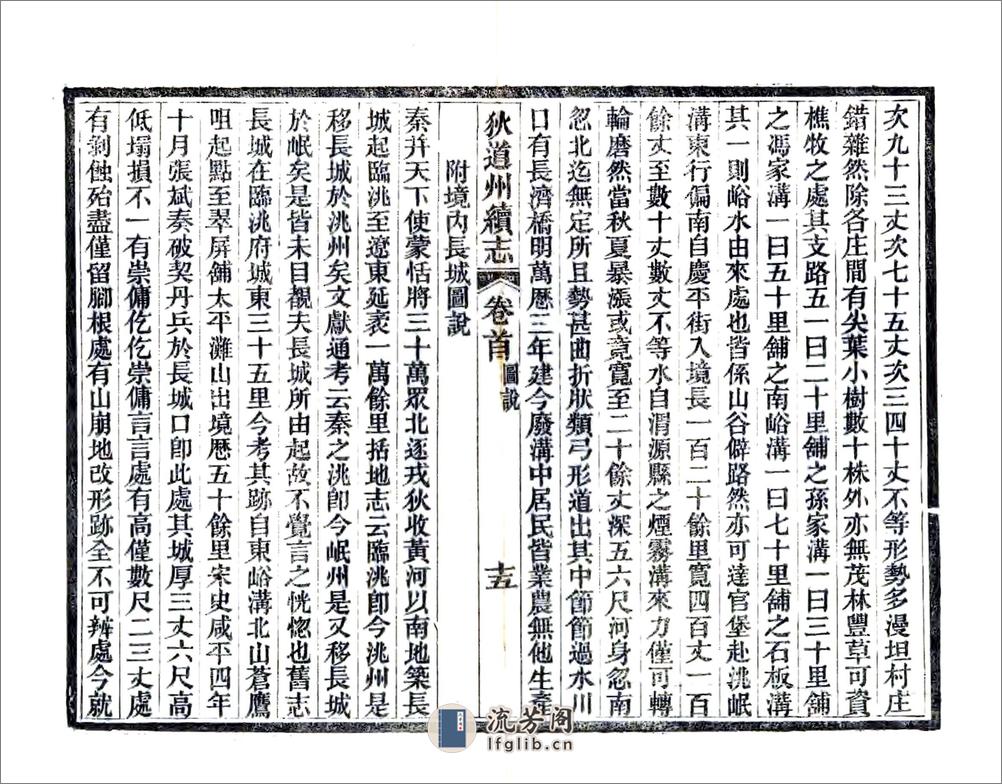 次九十三丈次七十五丈次三四十丈不等形勢多漫坦村庄
錯雜然除各庄間有尖葉小樹數十株外亦無茂林豐草可資
樵牧之處其支路五一曰二十里舖之孫家溝一曰三十里舖
之馮家溝一曰五十里舖之南峪溝一曰七十里舖之石板溝
其一則峪水由來處也皆係山谷僻路然亦可達官堡赴洮岷
溝東行偏南自慶平街入境長一百二十餘里寬四百丈一百
餘丈至數十丈數丈不等水自渭源縣之煙霧溝來力僅可轉
輪磨然當秋夏暴漲或竟寬至二十餘丈深五六尺河身忽南
忽北迄無定所且勢甚曲折狀類弓形道出其中節節過水川
口有長濟橋明萬厯三年建今廢溝中居民皆業農無他生產
狄道州續志 卷首 圖說 十五
附境內長城圖說
秦并天下使蒙恬將三十萬眾北逐戎狄收黃河以南地築長
城起臨洮至遼東延袤一萬餘里括地志云臨洮卽今洮州是
移長城於洮州矣文獻通考云秦之洮卽今岷州是又移長城
於岷矣是皆未目覩夫長城所由起故不覺言之恍惚也舊志
長城在臨洮府城東三十五里今考其跡自東峪溝北山蒼鷹
咀起點至翠屏舖太平灘山出境厯五十餘里宋史咸平四年
十月張斌奏破契丹兵於長城口卽此處其城厚三丈六尺高
低塌損不一有崇傭仡仡崇傭言言處有高僅數尺二三丈處
有剥蝕殆盡僅留腳根處有山崩地改形跡全不可辨處今就
流芳阁
lfglib.cn